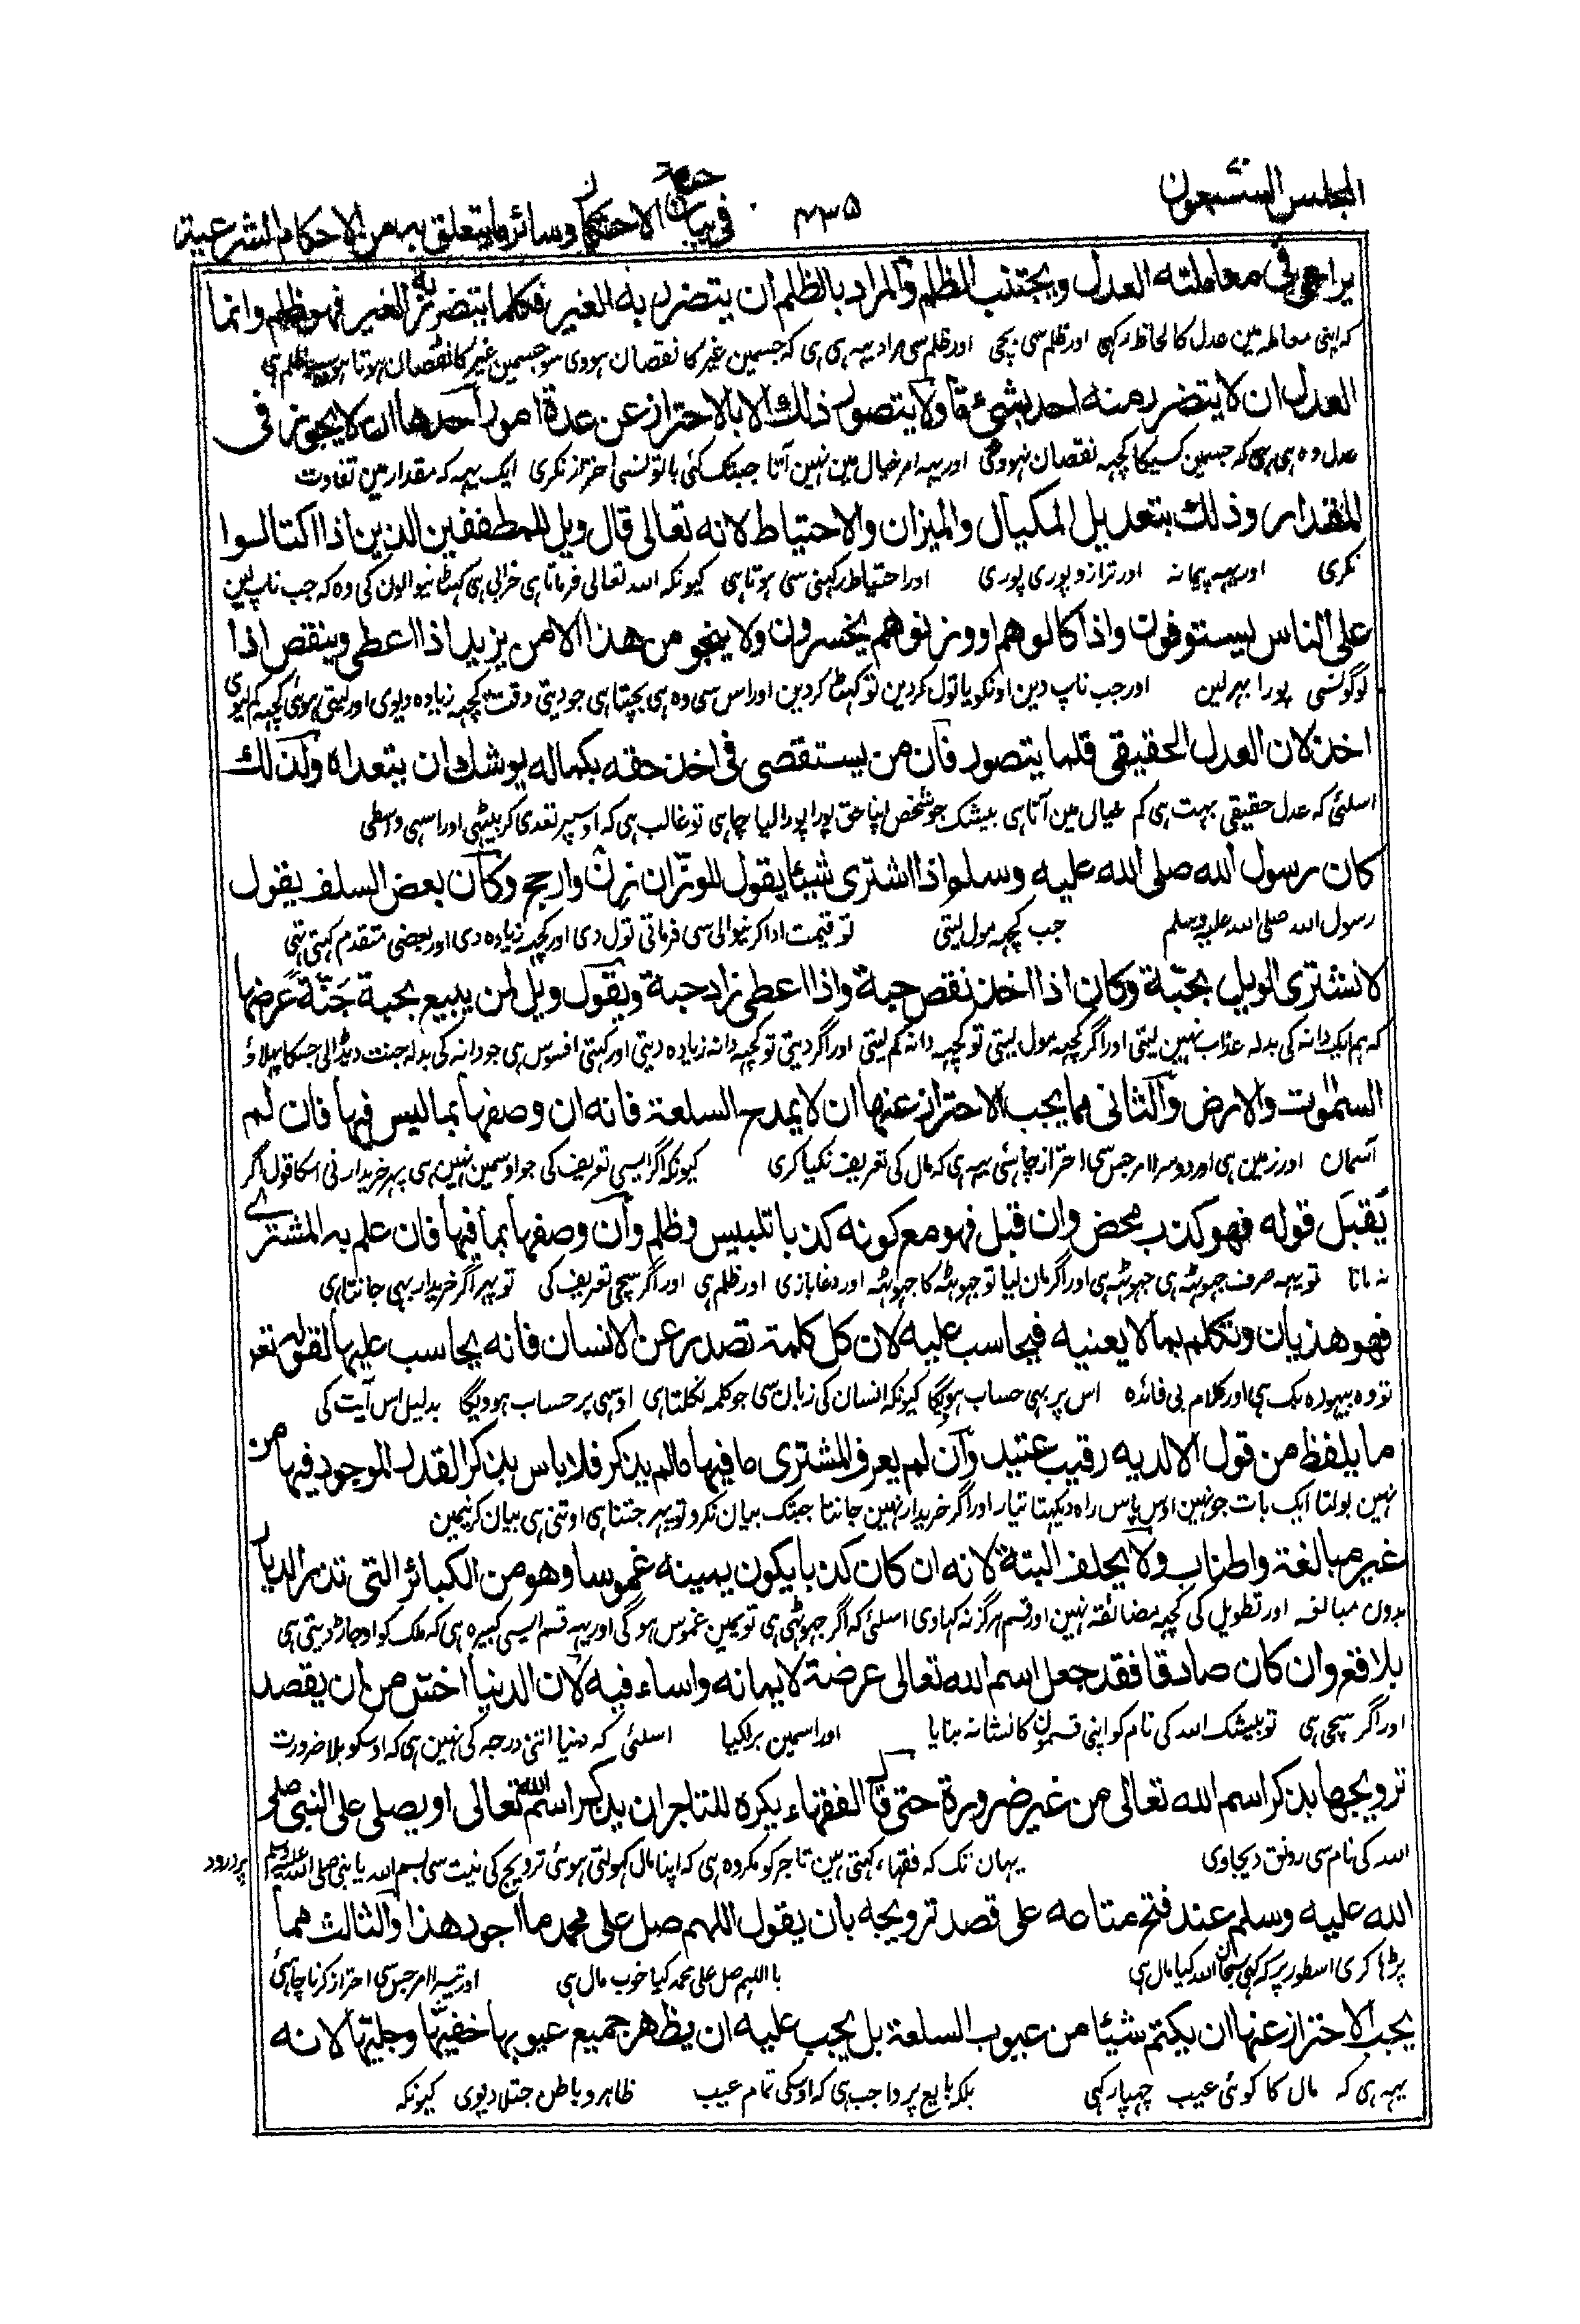 المجلس السبعون
٤٣٥
فی بیان الاحتکار وسائر ما یتعلق به من الاحکام الشرعیة
یراعی فی معاملته العدل ویجتنب الظلم والمراد بالظلم ان یتضرر به الغیر فکلما یتضرر به الغیر فهو ظلم وانما
کہ اپنی معاملہ مین عدل کا لحاظ رکہی اور ظلم سی بچی اور ظلم سی مراد یہہ ہی کہ جسمین غیر کا نقصان ہووی سو جسمین غیر کا نقصان ہوتا ہو وہ ظلم ہی
العدل ان لا یتضرر منه احد بشیء ما ولا یتصور ذلك الا بالاحتراز عن عدة امور احدها ان لا یجوز فی
عدل وہ ہی ہی کہ جسمین کسیکا کچہہ نقصان نہووی اور یہہ امر خیال مین نہین آتا جبتک کئی باتونسی احتراز نکری ایک یہہ کہ مقدار مین تفاوت
المقدار وذلك بتعدیل المکیال والمیزان والاحتیاط لانه تعالی قال ویل للمطففین الذین اذا اکتالوا
نکری اور یہہ پیمانہ اور ترازو پوری پوری اور احتیاط رکہنی سی ہوتا ہی کیونکہ اللہ تعالی فرماتا ہی خرابی ہی گہٹانیوالون کی وہ کہ جب ناپ لین
علی الناس یستوفون واذا کالوهم او وزنوهم یخسرون ولا ینجو من هذا الا من یزید اذا اعطی وینقص اذا
لوگونسی پورا بہر لین اور جب ناپ دین اونکو یا تول کر دین تو گہٹا کر دین اور اس سی وہ ہی بچتا ہی جو دیتی وقت کچہہ زیادہ دیوی اور لیتی ہوئی کچہہ کم لیوی
اخذ لان العدل الحقیقی قلما یتصور فان من یستقصی فی اخذ حقه بکماله یوشك ان یتعداه ولذلك
اسلئی کہ عدل حقیقی بہت ہی کم خیال مین آتا ہی بیشک جو شخص اپنا حق پورا پورا لیا چاہی تو غالب ہی کہ اوسپر تعدی کر بیٹہی اور اسی واسطی
کان رسول الله صلی الله علیه وسلم اذا اشتری شیئا یقول للوزّان زن وارجح وکان بعض السلف یقول
رسول اللہ صلی اللہ علیہ وسلم جب کچہہ مول لیتی تو قیمت ادا کرنیوالی سی فرماتی تول دی اور کچہہ زیادہ دی اور بعضی متقدم کہتی تہی
لا نشتری الویل بحبّة وکان اذا اخذ نقص حبة واذا اعطی زاد حبة ویقول ویل لمن یبیع بحبة جَنّة عرضها
کہ ہم ایک دانہ کی بدلہ عذاب نہین لیتی اور اگر کچہہ مول لیتی تو کچہہ دانہ کم لیتی اور اگر دیتی تو کچہہ دانہ زیادہ دیتی اور کہتی افسوس ہی جو دانہ کی بدلہ جنت دیڈالی جسکا پہلاؤ
السموٰت والارض والثانی مما یجب الاحتراز عنها ان لا یمدح السلعة فانه ان وصفها بما لیس فیها فان لم
آسمان اور زمین ہی اور دوسرا امر جس سی احتراز چاہئی یہہ ہی کہ مال کی تعریف نکیا کری کیونکہ اگر ایسی تعریف کی جو اوسمین نہین ہی پہر خریدار نی اسکا قول اگر
یقبل قوله فهو کذب محض وان قبل فهو مع کونه کذبا تلبیس وظلم وان وصفها بما فیها فان علم به المشتری
نہ مانا تو یہہ صرف جہوٹہہ ہی جہوٹہہ ہی اور اگر مان لیا تو جہوٹہہ کا جہوٹہہ اور دغا بازی اور ظلم ہی اور اگر سچی تعریف کی تو پہر اگر خریدار بہی جانتا ہی
فهو هذیان وتکلم بما لا یعنیه فیحاسب علیه لان کل کلمة تصدر عن الانسان فانه یحاسب علیها لقوله تعـ
تو وہ بیہودہ بک ہی اور کلام بی فائدہ اس پر بہی حساب ہویگا کیونکہ انسان کی زبان سی جو کلمہ نکلتا ہی اوسی پر حساب ہوویگا بدلیل اس آیت کی
ما یلفظ من قول الا لدیه رقیب عتید وان لم یعرف المشتری ما فیها مالم یذکر فلا باس بذکر القدر الموجود فیها من
نہین بولتا ایک بات جو نہین اوس پاس راہ دیکہتا تیار اور اگر خریدار نہین جانتا جبتک بیان نکرو تو پہر جتنا ہی اوتنی ہی بیان کرنیمین
غیر مبالغة واطناب ولا یحلف البتة لانه ان کان کذبا یکون یمینه غموسا وهو من الکبائر التی تذر الدیار
بدون مبالغہ اور تطویل کی کچہہ مضائقہ نہین اور قسم ہرگز نہ کہاوی اسلئی کہ اگر جہوٹہی ہی تو یمین غموس ہوگی اور یہہ قسم ایسی کبیرہ ہی کہ ملک کو اوجاڑ دیتی ہی
بلاقع وان کان صادقا فقد جعل اسم الله تعالی عرضة لایمانه واساء فیه لان الدنیا اخس من ان یقصد
اور اگر سچی ہی تو بیشک اللہ کی نام کو اپنی قسمون کا نشانہ بنایا اور اسمین برا کیا اسلئی کہ دنیا اتنی درجہ کی نہین ہی کہ اوسکو بلا ضرورت
ترویجها بذکر اسم الله تعالی من غیر ضرورة حتی قال الفقهاء یکره للتاجر ان یذکر اسم الله تعالی او یصلی علی النبی صلی
اللہ کی نام سی رونق دیجاوی یہان تک کہ فقہاء کہتی ہین تاجر کو مکروہ ہی کہ اپنا مال کہولتی ہوئی ترویج کی نیت سی بسم اللہ یا نبی صلی اللہ علیہ وسلم پر درود
الله علیه وسلم عند فتح متاعه علی قصد ترویجه بان یقول اللهم صل علی محمد ما اجود هذا والثالث مما
پڑہا کری اسطور پر کہ کہی سبحان اللہ کیا مال ہی یا اللہم صل علی محمد کیا خوب مال ہی اور تیسرا امر جس سی احتراز کرنا چاہئی
یجب الاحتراز عنها ان یکتم شیئا من عیوب السلعة بل یجب علیه ان یظهر جمیع عیوبها خفیّها وجلیّها لانه
یہہ ہی کہ مال کا کوئی عیب چہپا رکہی بلکہ بایع پر واجب ہی کہ اوسکی تمام عیب ظاہر و باطن جتلا دیوی کیونکہ